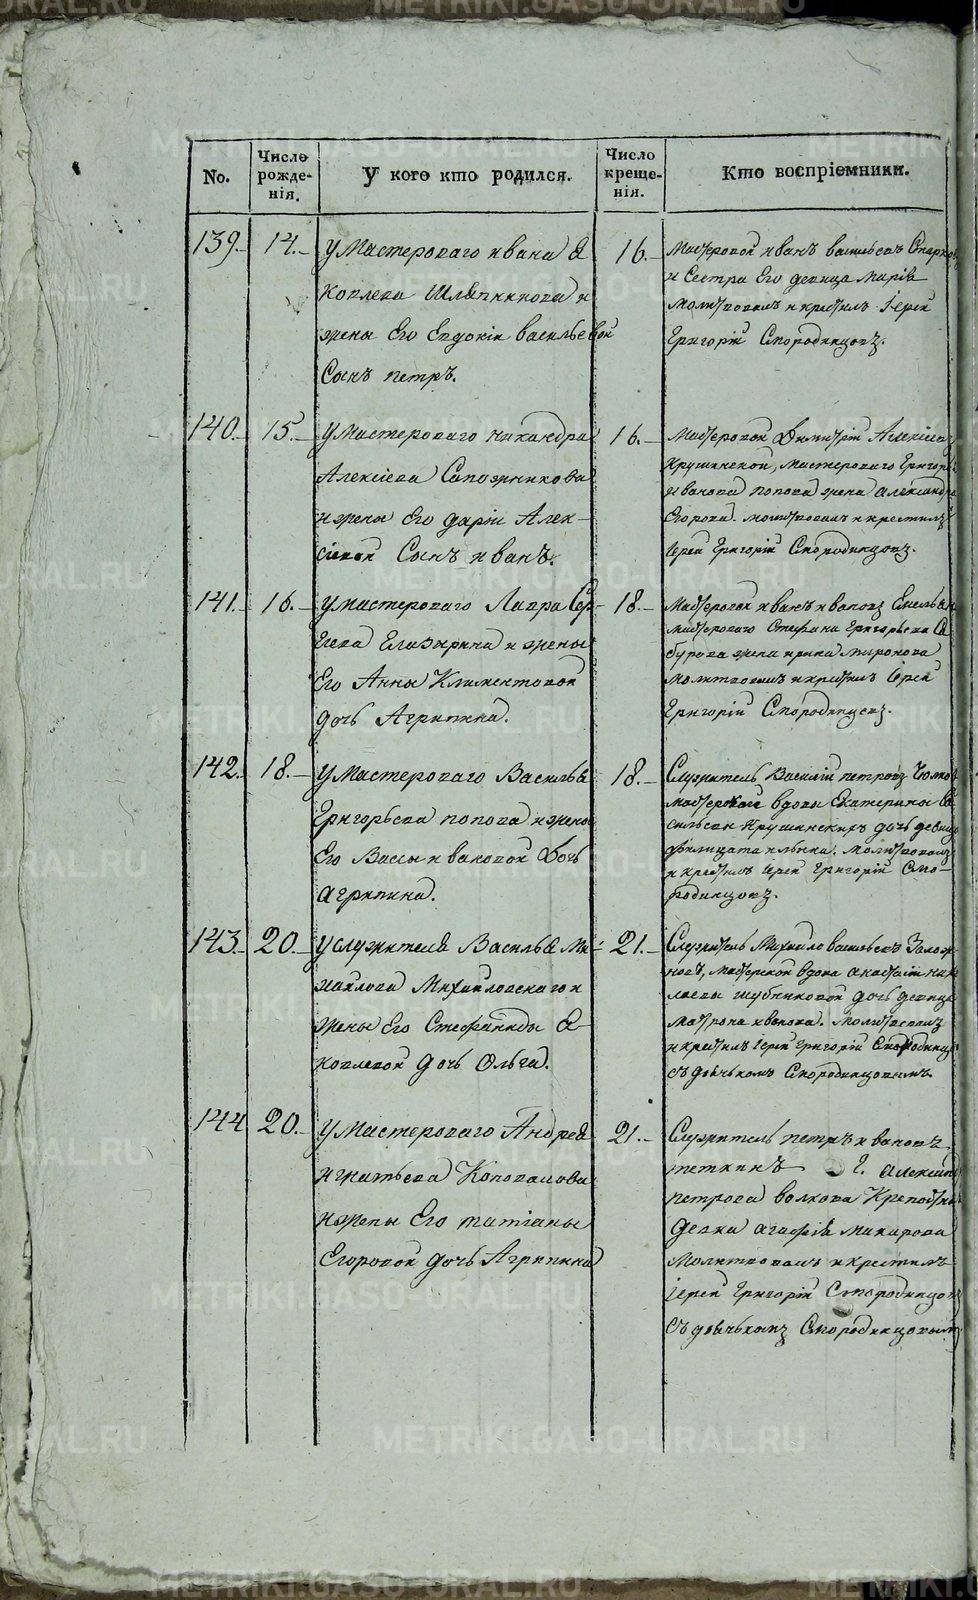 No.
Число рожде-нія.
У кого кто родился.
Число креще-нія.
Кто воспріемники.
139. 14.
у Мастероваго Ивана Я
ковлева Шляпникова и
жены Его Евдокіи Васильевой
Сынъ петръ.
16.
Мастеровой Иванъ васильевъ
и Сестра Его девица Марія
Молитвовалъ и крестилъ Іерей
Григорій Смородинцовъ.
140. 15.
у Мастероваго никандра
Алексіева Сапожникова
и жены Его даріи Алек-
сіевой Сынъ иванъ.
16.
Мастеровой Димитрій Алексіевъ
Крушинской, Мастероваго Григорія
иванова попова жена александра
Егорова. молитвовалъ и крестилъ
Іерей Григорій Смородинцовъ.
141. 16.
у мастероваго Лавра Сер-
геева Елизарина и жены
Его Анны Климентовой
дочь Агрипина.
18.
Мастеровой иванъ ивановъ
Мастероваго Стефана Григорьева
бурова жена ирина Миронова
Молитвовалъ и крестилъ Іерей
Григорій Смородинцевъ.
142. 18.
у Мастероваго Василья
Григорьева попова и жены
Его Вассы ивановой Дочь
агрипина.
18.
Служитель Василій петровъ
мастерской вдовы Екатерины Ва
сильевы Крушинскихъ дочь девица
филицата ильина. Молитвовалъ
и крестилъ Іерей Григорій Смо-
родинцовъ.
143. 20.
у служителя Василья Ми-
хаилова Михайловскаго и
жены Его Стефаниды Я-
ковлевой дочь Ольга.
21.
Служитель Михайло васильевъ
новъ, Мастерской вдовы анастасіи ника
лаевы шубниковой дочь девица
Матрона иванова. Молитвовалъ
и крестилъ Іерей Григорій Смородинцовъ
съ дьячькомъ Смородинцовымъ.
144 20.
у Мастероваго Андрея
игнатьева Коновалова
и жены Его татіаны
Егоровой дочь Агрипина
21.
Служитель петръ ивановъ
теткинъ Г. алексія
петрова волкова Крепостная
девка агафія макарова
Молитвовалъ и крестилъ
Іерей Григорій Смородинцовъ
съ дьячькомъ Смородинцовымъ
METRIKI.GASO-URAL.RU